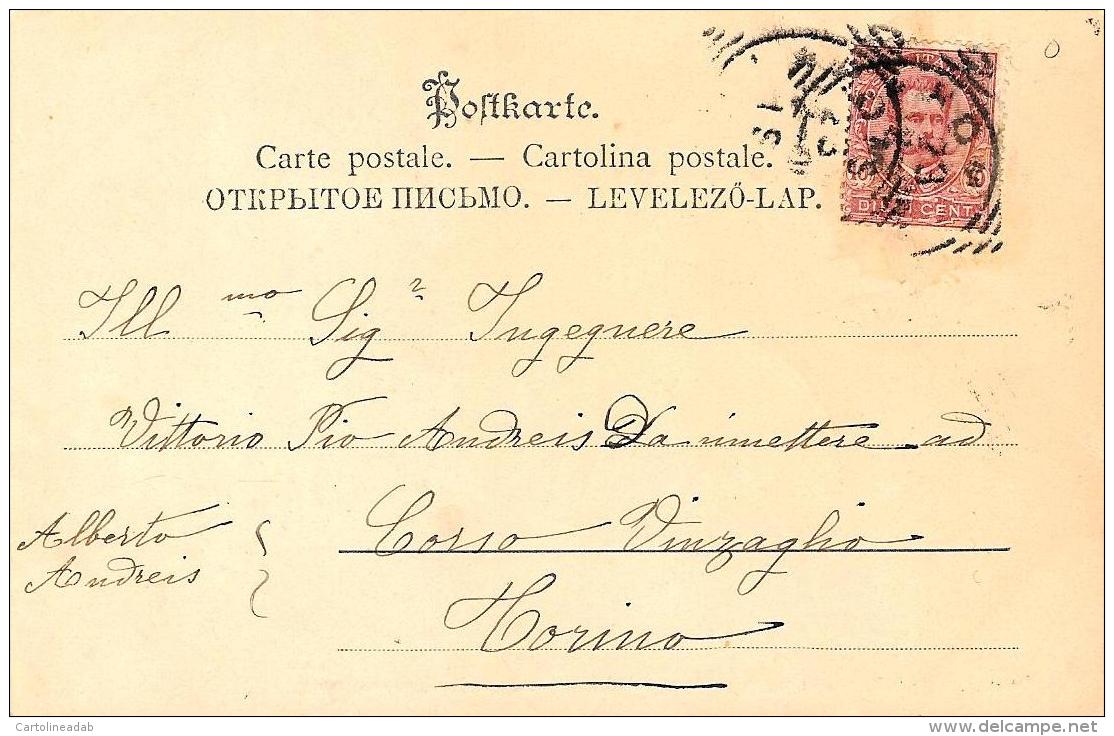 Postkarte.
Carte postale. — Cartolina postale.
ОТКРЫТОЕ ПИСЬМО. — LEVELEZŐ-LAP.
DIECI CENT
Ill mo Sig r Ingegnere
Vittorio Pio Andreis Da rimettere ad
Alberto
Andreis
Corso Vinzaglio
Torino
Cartolineadab
www.delcampe.net